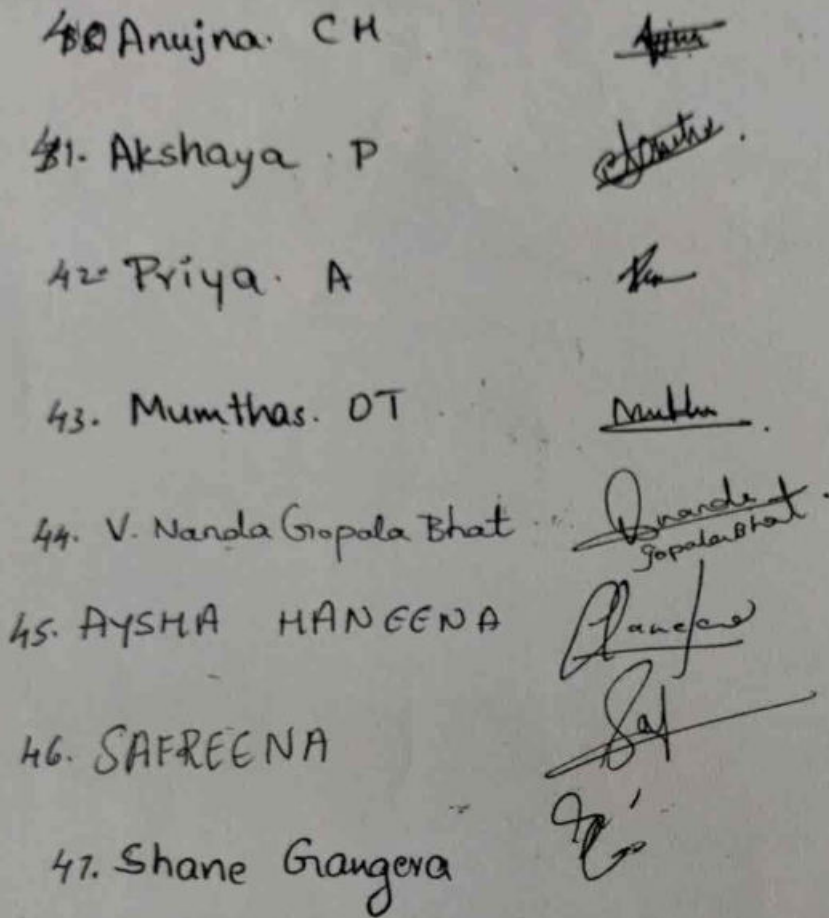 40 Anujna. CH
41. Akshaya . P
42. Priya. A
43. Mumthas. OT
44. V. Nanda Gopala Bhat
Gopala Bhat
45. AYSHA HANEENA
46. SAFREENA Saf
47. Shane Gangera